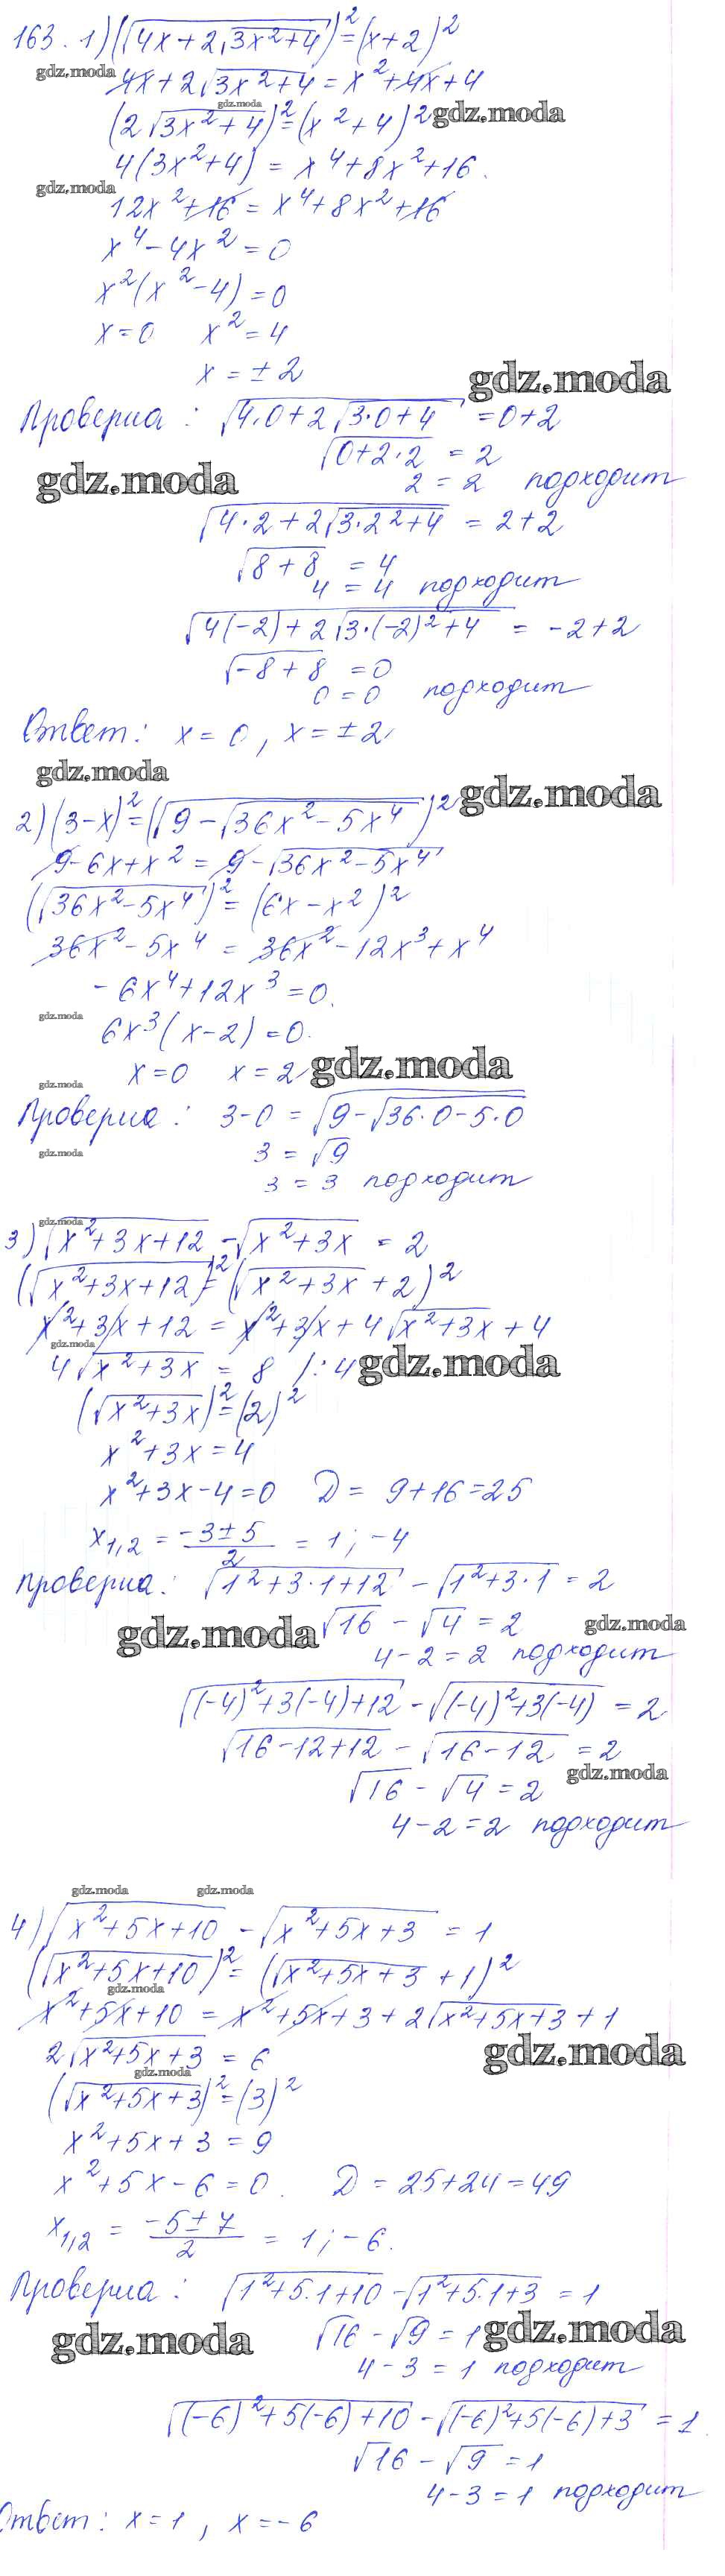 163. 1) (√(4x+2√(3x²+4)))² = (x+2)²
gdz.moda
4x + 2√(3x²+4) = x² + 4x + 4
gdz.moda
(2√(3x²+4))² = (x²+4)²
gdz.moda
4(3x²+4) = x⁴+8x²+16.
gdz.moda
12x²+16 = x⁴+8x²+16
x⁴-4x² = 0
x²(x²-4)=0
x=0 x²=4
x = ±2
gdz.moda
Проверка: √(4·0+2√(3·0+4)) = 0+2
√(0+2·2) = 2
gdz.moda
2 = 2 подходит
√(4·2+2√(3·2²+4)) = 2+2
√(8+8) = 4
4 = 4 подходит
√(4(-2)+2√(3·(-2)²+4)) = -2+2
√(-8+8) = 0
0=0 подходит
Ответ: x=0, x=±2
gdz.moda
gdz.moda
2) (3-x)² = (√(9-√(36x²-5x⁴)))²
9-6x+x² = 9-√(36x²-5x⁴)
(√(36x²-5x⁴))² = (6x-x²)²
36x²-5x⁴ = 36x²-12x³+x⁴
-6x⁴+12x³=0.
gdz.moda
6x³(x-2)=0.
x=0 x=2
gdz.moda
gdz.moda
Проверка: 3-0 = √(9-√(36·0-5·0))
3 = √9
gdz.moda
3 = 3 подходит
gdz.moda
3) √(x²+3x+12) - √(x²+3x) = 2
(√(x²+3x+12))² = (√(x²+3x)+2)²
x²+3x+12 = x²+3x+4√(x²+3x)+4
gdz.moda
4√(x²+3x) = 8 /:4
gdz.moda
(√(x²+3x))² = (2)²
x²+3x=4
x²+3x-4=0 D = 9+16=25
x₁,₂ = (-3±5)/2 = 1; -4
Проверка: √(1²+3·1+12) - √(1²+3·1) = 2
√16 - √4 = 2
gdz.moda
gdz.moda
4-2=2 подходит
√((-4)²+3(-4)+12) - √((-4)²+3(-4)) = 2
√(16-12+12) - √(16-12) = 2
gdz.moda
√16 - √4 = 2
4-2=2 подходит
gdz.moda
gdz.moda
4) √(x²+5x+10) - √(x²+5x+3) = 1
(√(x²+5x+10))² = (√(x²+5x+3)+1)²
gdz.moda
x²+5x+10 = x²+5x+3+2√(x²+5x+3)+1
2√(x²+5x+3) = 6
gdz.moda
gdz.moda
(√(x²+5x+3))² = (3)²
x²+5x+3 = 9
x²+5x-6=0. D = 25+24=49
x₁,₂ = (-5±7)/2 = 1; -6.
Проверка: √(1²+5·1+10) - √(1²+5·1+3) = 1
√16 - √9 = 1
gdz.moda
gdz.moda
4-3 = 1 подходит
√((-6)²+5(-6)+10) - √((-6)²+5(-6)+3) = 1
√16 - √9 = 1
4-3=1 подходит
Ответ: x=1, x=-6